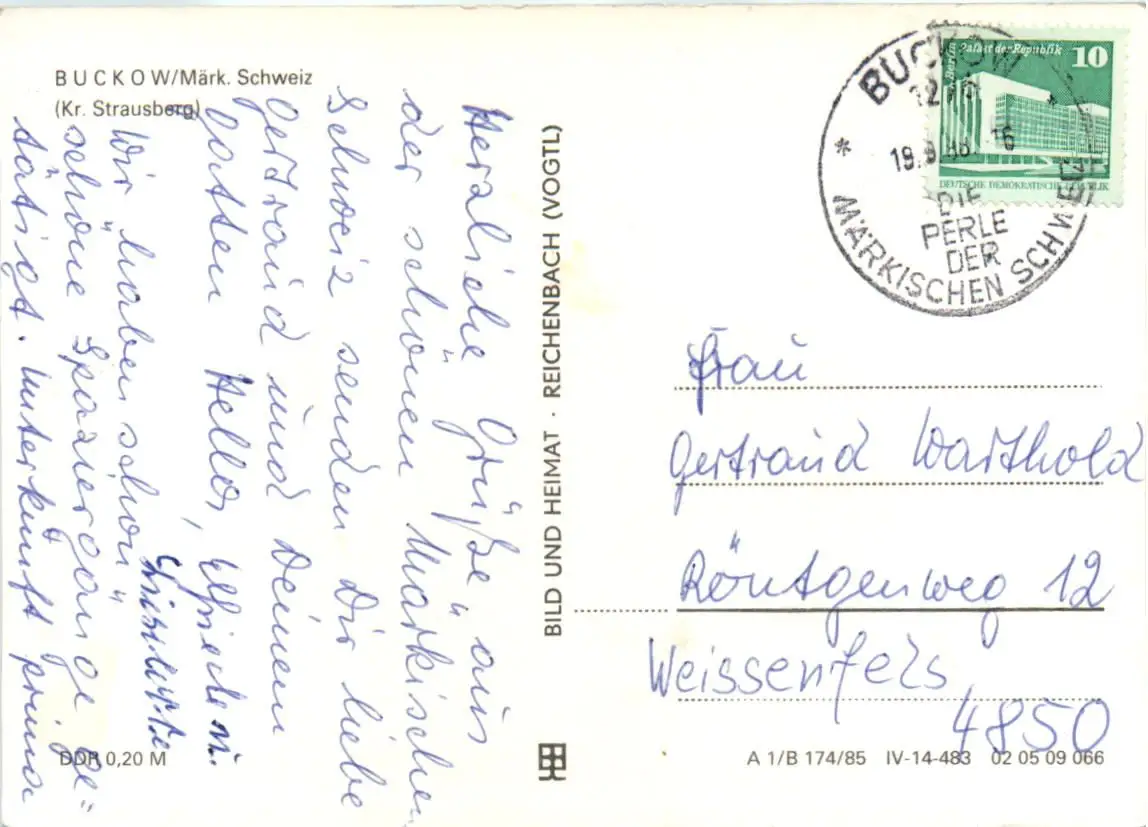 BUCKOW/Märk. Schweiz
(Kr. Strausberg)
Herzliche Grüße aus
der schönen Märkischen
Schweiz senden Dir liebe
Gertraud und Deinem
Gatten
Wir haben schon
schöne Spaziergänge ge-
tätigt. Unterkunft prima
DDR 0,20 M
BILD UND HEIMAT · REICHENBACH (VOGTL)
Berlin Palast der Republik 10
DEUTSCHE DEMOKRATISCHE REPUBLIK
BUCKOW
DIE
PERLE
DER
MÄRKISCHEN SCHWEIZ
Frau
Gertraud Warthold
Röntgenweg 12
Weissenfels
4850
A 1/B 174/85 IV-14-483 02 05 09 066